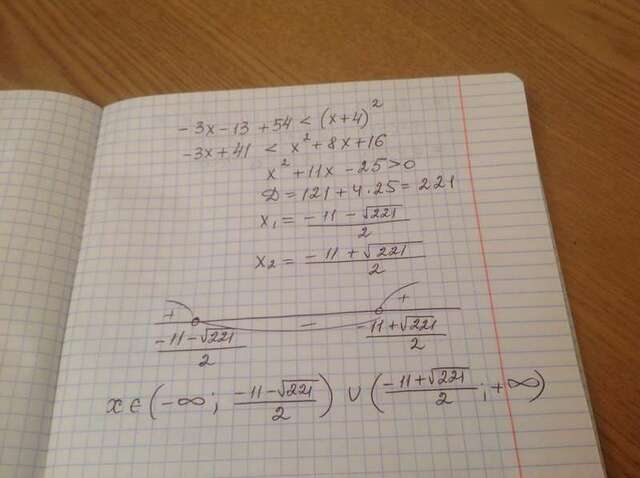 -3x-13+54<(x+4)²
-3x+41 < x²+8x+16
x²+11x-25>0
D=121+4·25=221
x₁= (-11-√221)/2
x₂= (-11+√221)/2
+ - +
(-11-√221)/2 (-11+√221)/2
x∈(-∞; (-11-√221)/2) ∪ ((-11+√221)/2; +∞)